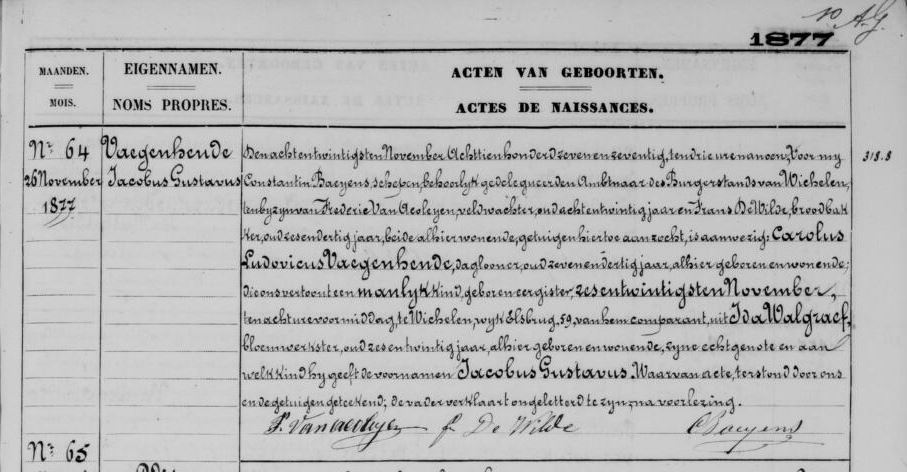 No A.G.
1877
MAANDEN.
MOIS.
EIGENNAMEN.
NOMS PROPRES.
ACTEN VAN GEBOORTEN.
ACTES DE NAISSANCES.
No 64
26 November
1877
Vaegenhende
Jacobus Gustavus
318.8
Den achtentwintigsten November Achttienhonderd zevenenzeventig, ten drie uren a noen, Voor my
Constantin Baeyens, schepen, behoorlyk gedelegueerden Ambtnaar des Burgerstands van Wichelen,
ten byzyn van Frederic Van Acoleyen, veldwachter, oud achtentwintig jaar en Frans De Wilde, broodbak
ker, oud zesendertig jaar, beide alhier wonende, getuigen hiertoe aanzocht, is aanwezig: Carolus
Ludovicus Vaegenhende, daglooner, oud zevenendertig jaar, alhier geboren en wonende;
die ons vertoont een manlyk kind, geboren eergister, zesentwintigsten November,
ten acht ure voormiddag, te Wichelen, wyk Elsbrug, 59, van hem comparant, uit Ida Walgraef,
bloemwerkster, oud zesentwintig jaar, alhier geboren en wonende, zyne echtgenote en aan
welk kind hy geeft de voornamen Jacobus Gustavus. Waarvan acte, terstond door ons
en de getuigen geteekend; de vader verklaart ongeletterd te zyn, na voorlezing.
f. De Wilde
C Baeyens
No 65